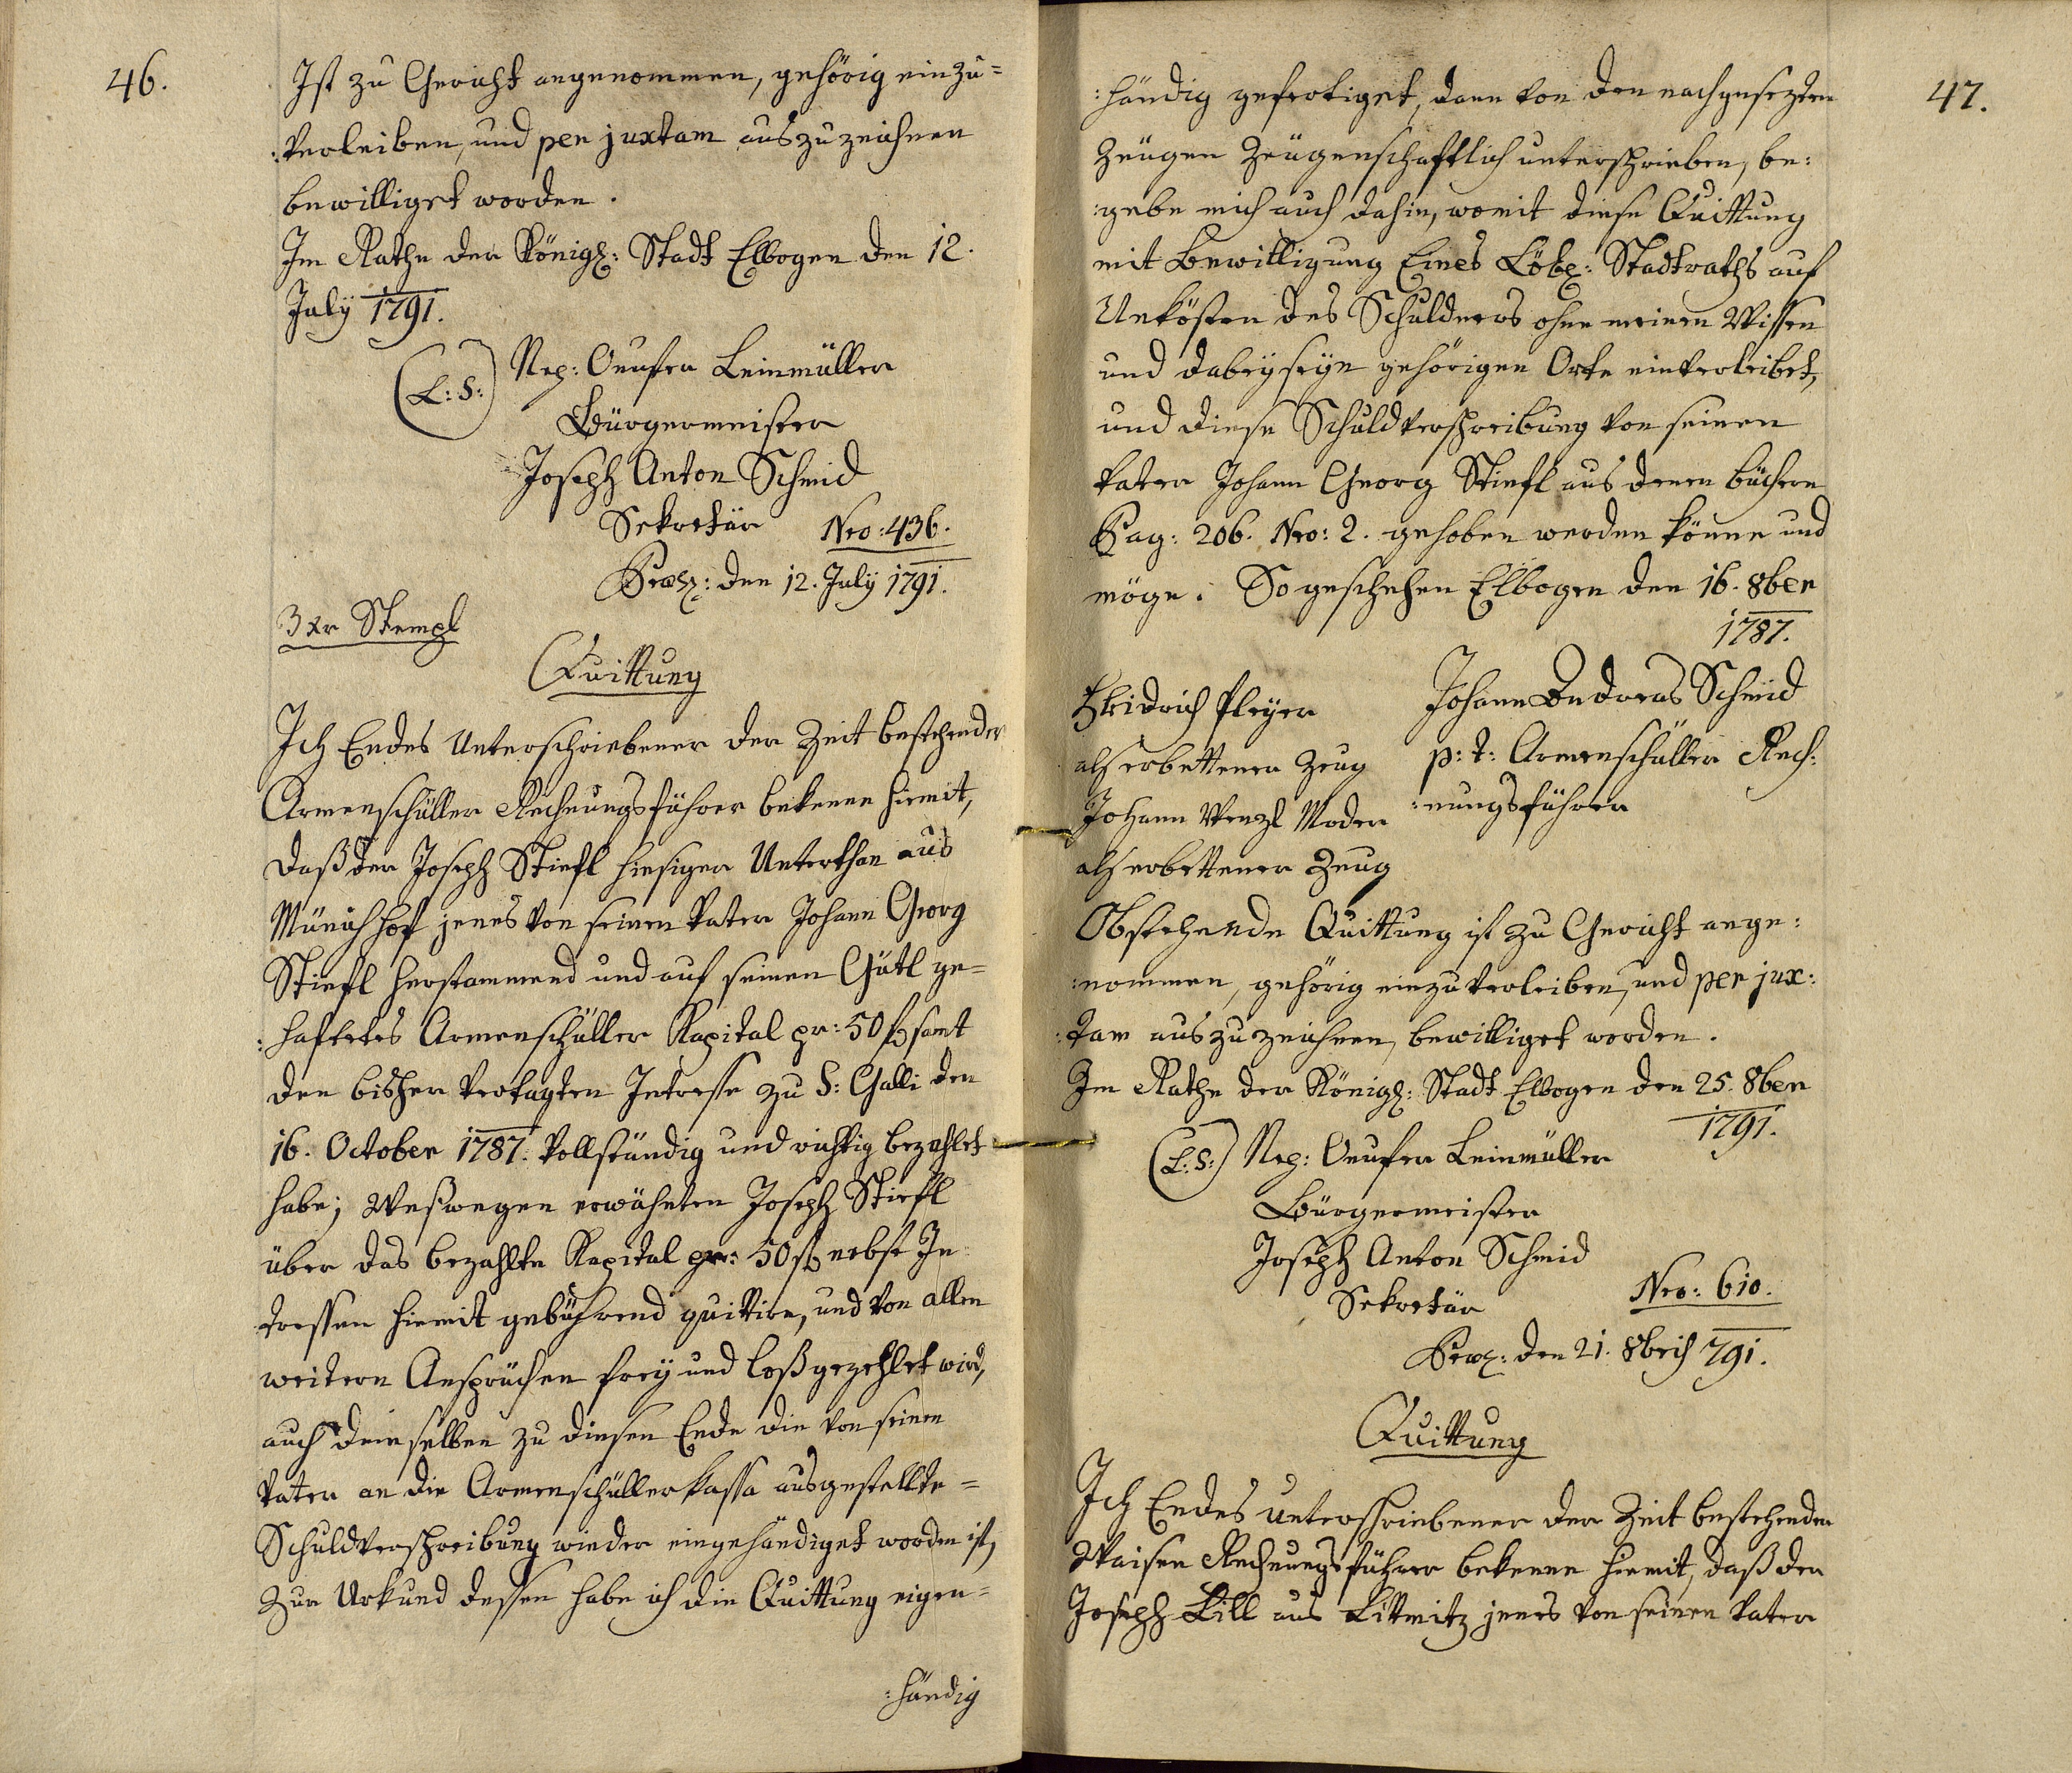 46.
Ist zu Gericht angenommen, gehörig einzu=
:verleiben, und per juxtam auszuzeichnen
bewilliget worden.
Im Rathe der Königl: Stadt Elbogen den 12.
July 1791.
(L:S:) Nep: Onufer Leinmüller
Bürgermeister
Joseph Anton Schmid
Sekretär Nro: 436.
Præs: den 12. July 1791.
3 xr Stempl
Quittung
Ich Endes Unterschriebener der Zeit bestehender
Armenschüller Rechnungsführer bekenne hiemit,
daß der Joseph Stiefl hiesiger Unterthan aus
Münichhof jenes von seinen Vater Johann Georg
Stiefl herstammend und auf seinen Gütl ge=
:haftetes Armenschüller Kapital pr: 50 f samt
den bisher vertagten Intresse zu S: Galli den
16. October 1787. vollständig und richtig bezahlet
habe; Weßwegen erwähnten Joseph Stiefl
über das bezahlte Kapital pr: 50 f nebst In
tressen hiemit gebührend quittire, und von allen
weitern Ansprüchen frey und loßgezehlet wird,
auch demselben zu diesen Ende die von seinen
Vater an die Armenschüllerkassa ausgestellte=
Schuldverschreibung wieder eingehändiget worden ist,
Zur Urkund dessen habe ich die Quittung eigen=
:händig
47.
:händig gefertiget, dann von den nachgesezten
Zeugen Zeugenschaftlich unterschrieben, be:
:gebe mich auch dahin, womit diese Quittung
mit Bewilligung Eines Löbl: Stadtraths auf
Unkösten des Schuldners ohne meinen Wissen
und dabeyseyn gehörigen Orte einverleibet,
und diese Schuldverschreibung von seinen
Vater Johann Georg Stiefl aus denen büchern
Pag: 206. Nro: 2. gehoben werden könne und
möge. So geschehen Elbogen den 16. 8ber
1787.
Pleyer
Johann Andreas Schmid
als erbettener Zeug
p: t: Armenschüller Rech:
Johann Wenzl Moder
:nungsführer
als erbettener Zeug
Obstehende Quittung ist zu Gericht ange:
:nommen, gehörig einzuverleiben, und per jux:
:tam auszuzeichnen, bewilliget worden.
Im Rathe der Königl: Stadt Elbogen den 25. 8ber
1791.
(L:S:) Nep: Onufer Leinmüller
Bürgermeister
Joseph Anton Schmid
Sekretär Nro: 610.
Præs: den 21. 8bris 791.
Quittung
Ich Endes unterschriebener der Zeit bestehender
Waisen Rechnungsführer bekenne hiemit, daß der
Joseph Lill aus Littmitz jenes von seinen Vater